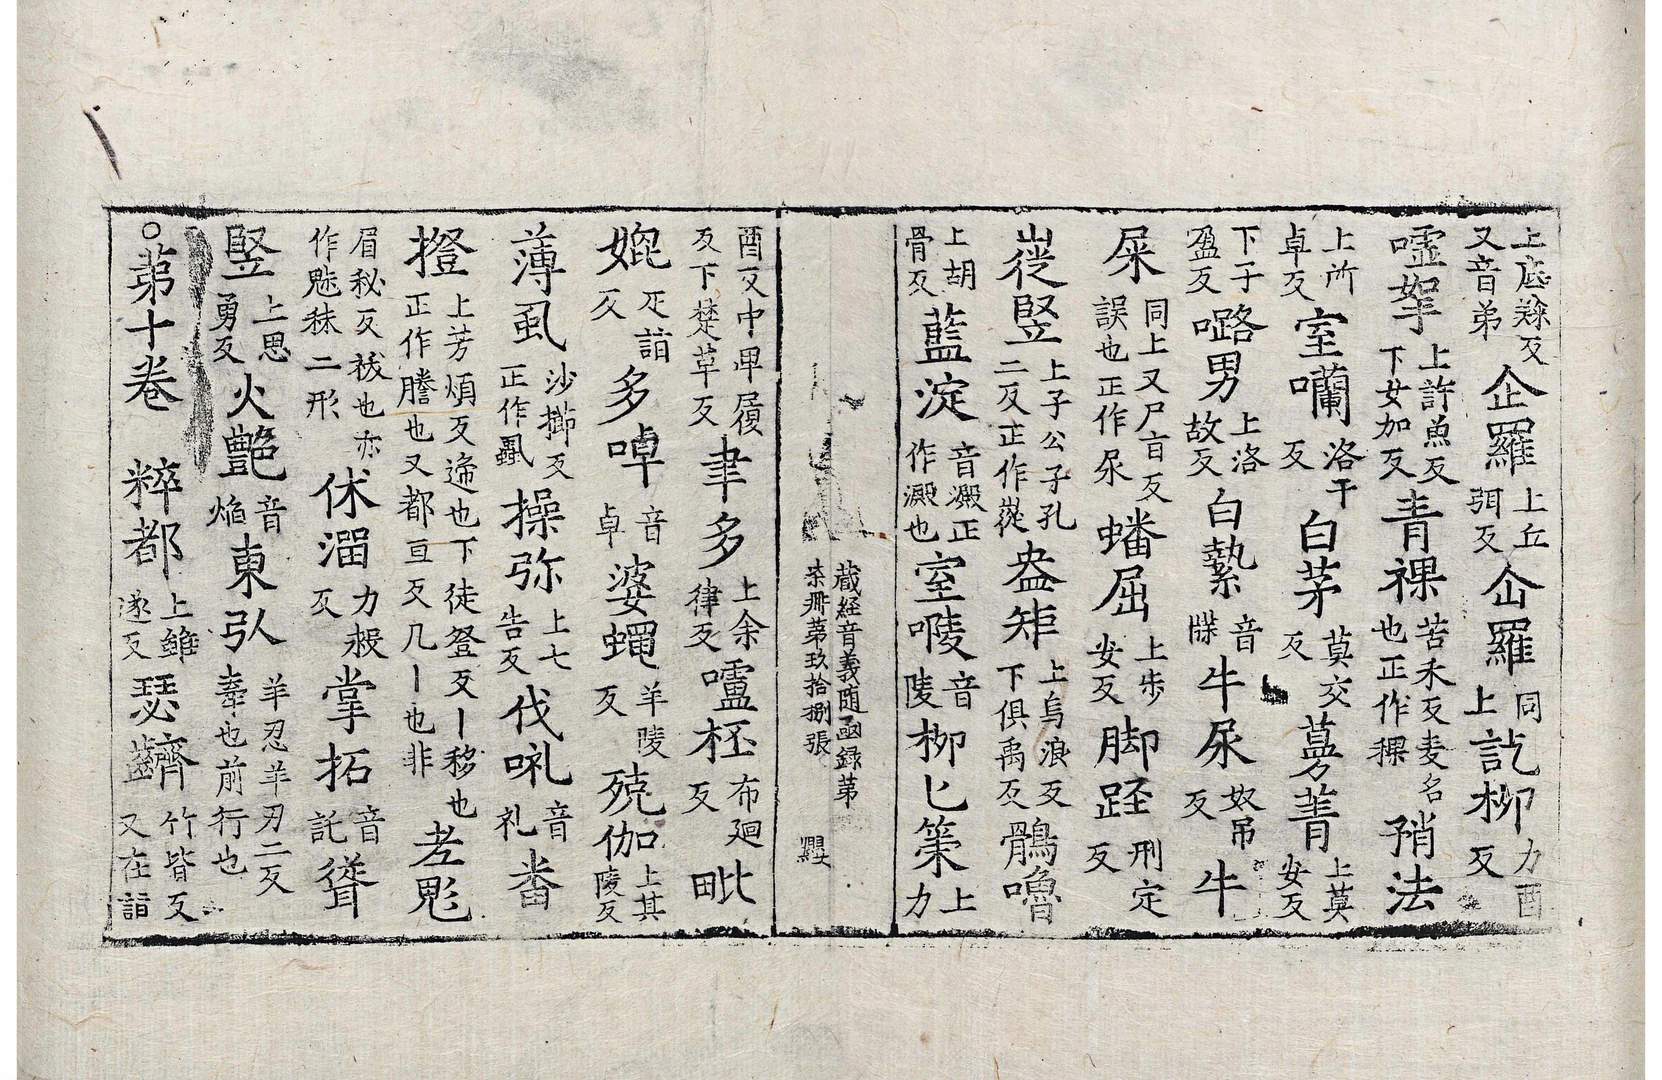 上底㷠反又音弟 企羅 上丘弭反 㐺羅 同上 訖栁 力酉反
嘘挐 上許魚反下女加反 青祼 苦禾反麦名也正作稞 矟法
上所卓反 室囒 洛干反 白茅 莫交反 蒭菁 上莫安反
下子盈反 㗉男 上洛故反 白𣯛 音牒 牛尿 奴吊反 牛
屎 同上又尸盲反誤也正作尿 蟠屈 上步安反 脚踁 刑定反
嵸竪 上子公子孔二反正作嵸 盎矩 上烏浪反下俱禹反 鶻嚕
上胡骨反 藍淀 音澱正作澱也 室㖫 音陵 栁匕 䇿 上力
蔵経音義随函録第
柒冊第玖拾捌張
酉反中卑履反下楚草反 聿多 上余律反 嚧柸 布廻反 毗
媲 疋詣反 多啅 音卓 婆蠅 羊陵反 殑伽 上其陵反
薄虱 沙擳反正作蝨 操弥 上七告反 伐𠯆 音礼 畨
撜 上芳煩反递也下徒登反丨移也正作謄也又都亘反几丨也非 老鬽
眉秘反祓也亦作魅袜二形 休溜 力救反 掌拓 音託 聳
竪 上思勇反 火艶 音焔 東引 羊忍羊刃二反牽也前行也
○苐十卷 粹都 上雖遂反 瑟䶩 竹皆反又在詣